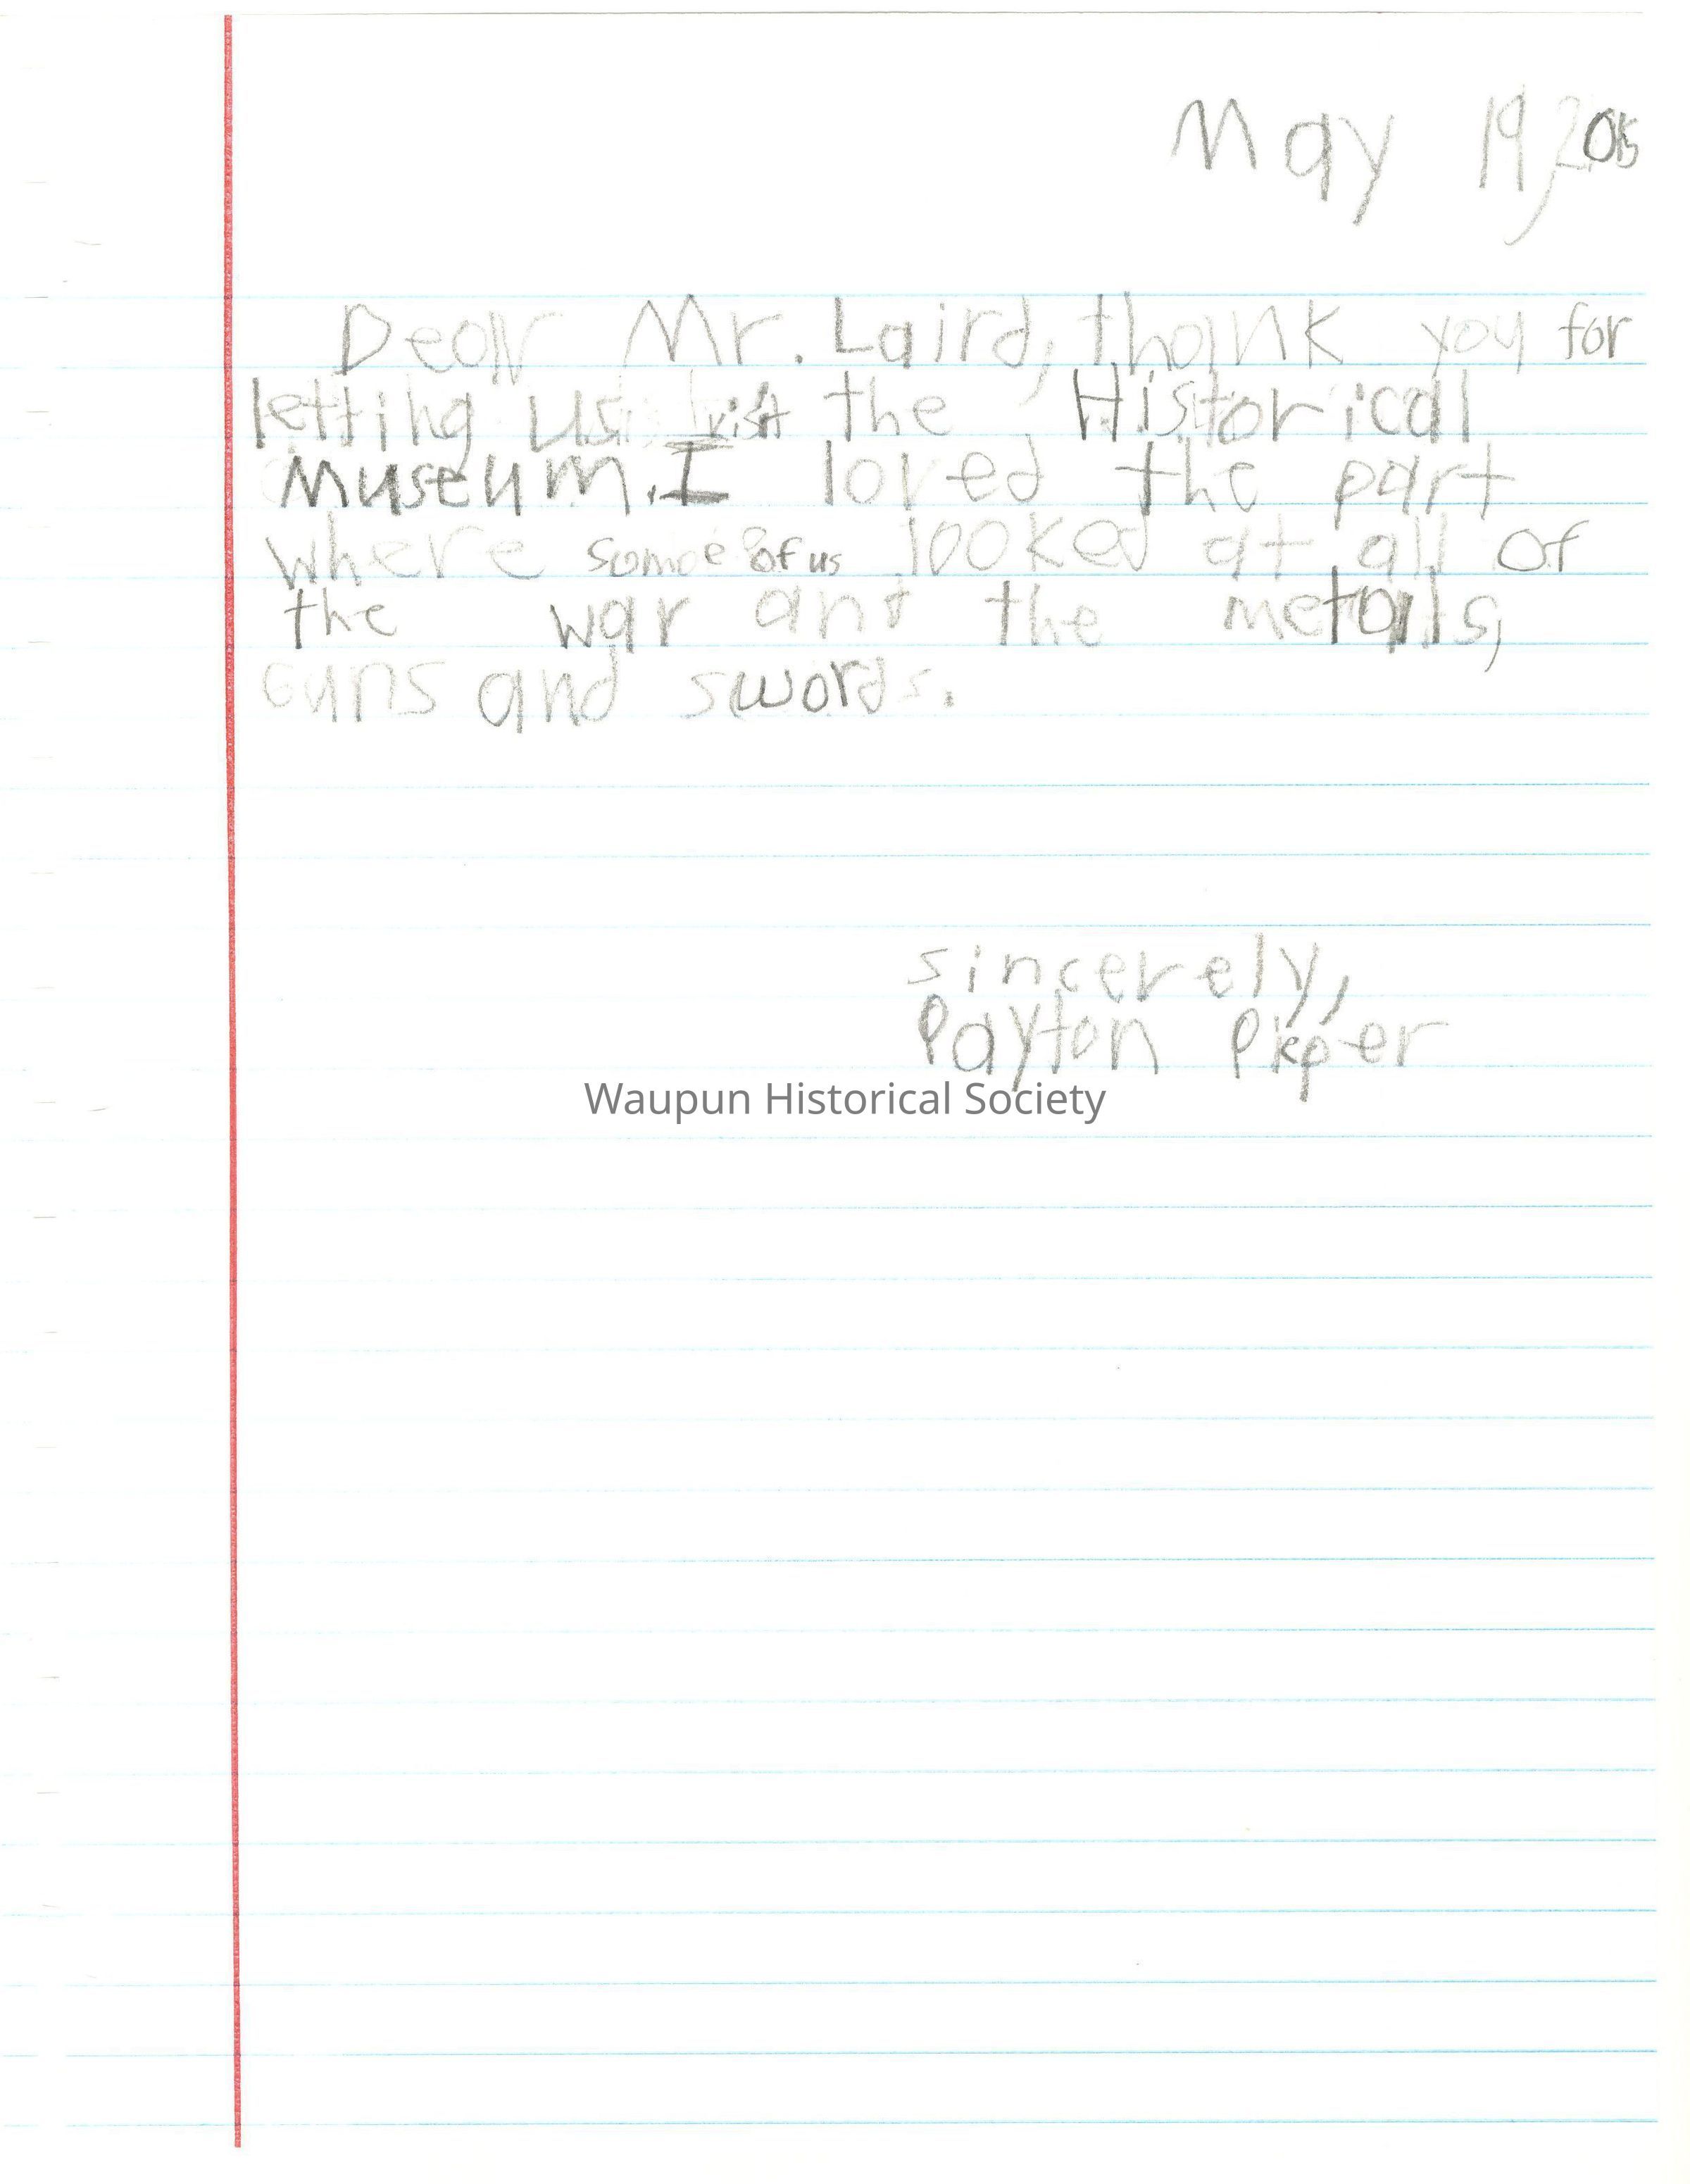 May 19, 2015
Dear Mr. Laird, thank you for
letting us visit the Historical
Museum. I loved the part
where some of us looked at all of
the war and the metals,
guns and swords.
sincerely,
Payton Pieper
Waupun Historical Society